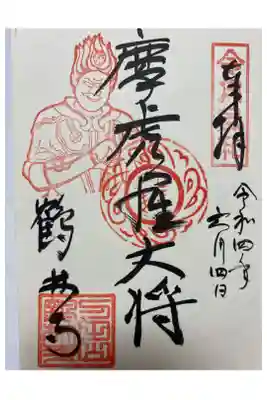 奉拝
令和四年
五月四日
摩虎羅大将
鶴林寺